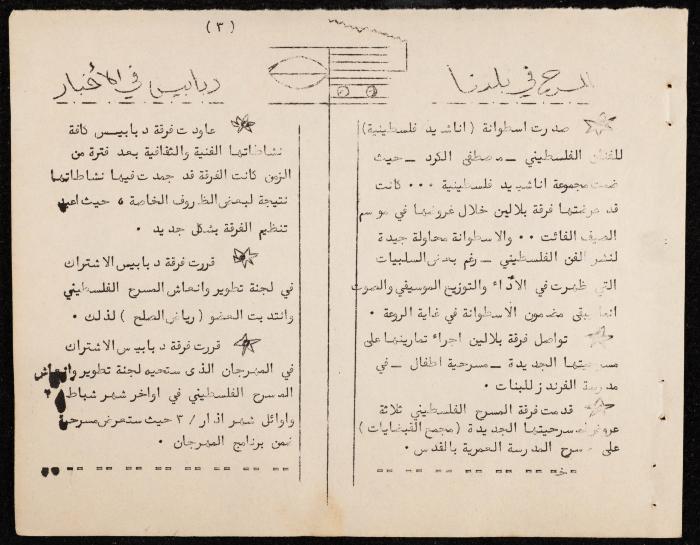 (٣)
المسرح في بلدنا
صدرت اسطوانة (اناشيد فلسطينية)
للفنان الفلسطيني ــ مصطفى الكرد ــ حيث
ضمت مجموعة اناشيد فلسطينية ٠٠٠ كانت
قد عرضتها فرقة بلالين خلال عروضها في موسم
الصيف الفائت ٠٠ والاسطوانة محاولة جيدة
لنشر الفن الفلسطيني ــ رغم بعض السلبيات
التي ظهرت في الأداء والتوزيع الموسيقي والصوت
انما يبقى مضمون الاسطوانة في غاية الروعة ٠
تواصل فرقة بلالين اجراء تمارينها على
مسرحيتها الجديدة ــ مسرحية اطفال ــ في
مدرسة الفرندز للبنات ٠
قدمت فرقة المسرح الفلسطيني ثلاثة
عروض لمسرحيتها الجديدة (مجمع القبضايات)
على مسرح المدرسة العمرية بالقدس ٠
دبابيس في الأخبار
عاودت فرقة دبابيس كافة
نشاطاتها الفنية والثقافية بعد فترة من
الزمن كانت الفرقة قد جمدت فيها نشاطاتها
نتيجة لبعض الظروف الخاصة ، حيث اعيد
تنظيم الفرقة بشكل جديد ٠
قررت فرقة دبابيس الاشتراك
في لجنة تطوير وانعاش المسرح الفلسطيني
وانتدبت العضو (رياض الصلح) لذلك ٠
قررت فرقة دبابيس الاشتراك
في المهرجان الذى ستحييه لجنة تطوير وانعاش
المسرح الفلسطيني في اواخر شهر شباط
واوائل شهر اذار /٣ حيث ستعرض مسرحية
ضمن برنامج المهرجان ٠